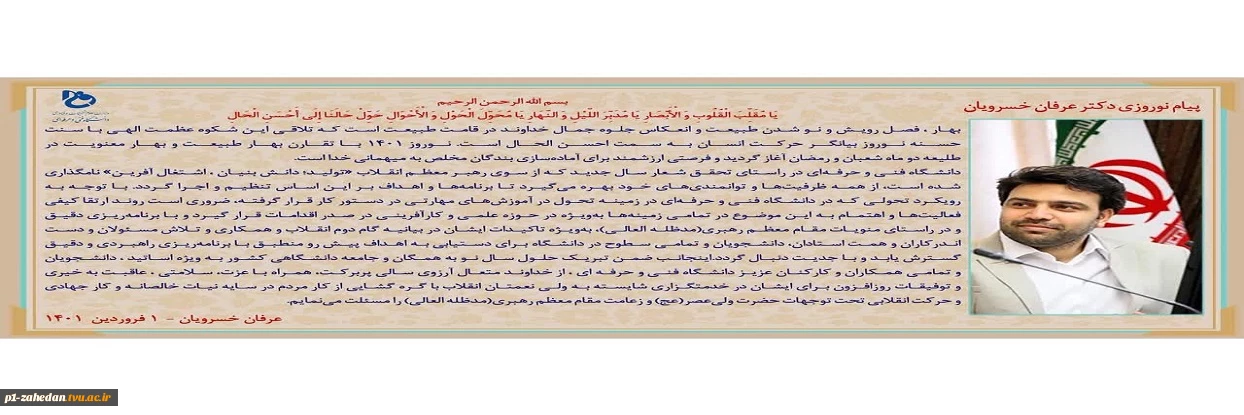 پیام نوروزی دکتر عرفان خسرویان
بسم الله الرحمن الرحیم
یَا مُقَلِّبَ الْقُلُوبِ وَ الْأَبْصَارِ یَا مُدَبِّرَ اللَّیْلِ وَ النَّهَارِ یَا مُحَوِّلَ الْحَوْلِ وَ الْأَحْوَالِ حَوِّلْ حَالَنَا إِلَی أَحْسَنِ الْحَالِ
بهار ، فصل رویش و نو شدن طبیعت و انعکاس جلوه جمال خداوند در قامت طبیعت است که تلاقی این شکوه عظمت الهی با سنت
حسنه نوروز بیانگر حرکت انسان به سمت احسن الحال است. نوروز ۱۴۰۱ با تقارن بهار طبیعت و بهار معنویت در
طلیعه دو ماه شعبان و رمضان آغاز گردید و فرصتی ارزشمند برای آماده‌سازی بندگان مخلص به میهمانی خدا است.
دانشگاه فنی و حرفه‌ای در راستای تحقق شعار سال جدید که از سوی رهبر معظم انقلاب «تولید؛ دانش بنیان ، اشتغال آفرین» نامگذاری
شده است، از همه ظرفیت‌ها و توانمندی‌های خود بهره می‌گیرد تا برنامه‌ها و اهداف بر این اساس تنظیم و اجرا گردد. با توجه به
رویکرد تحولی که در دانشگاه فنی و حرفه‌ای در زمینه تحول در آموزش‌های مهارتی در دستور کار قرار گرفته، ضروری است روند ارتقا کیفی
فعالیت‌ها و اهتمام به این موضوع در تمامی زمینه‌ها به‌ویژه در حوزه علمی و کارآفرینی در صدر اقدامات قرار گیرد و با برنامه‌ریزی دقیق
و در راستای منویات مقام معظم رهبری(مدظله العالی)، به‌ویژه تاکیدات ایشان در بیانیه گام دوم انقلاب و همکاری و تلاش مسئولان و دست
اندرکاران و همت استادان، دانشجویان و تمامی سطوح در دانشگاه برای دستیابی به اهداف پیش رو منطبق با برنامه‌ریزی راهبردی و دقیق
گسترش یابد و با جدیت دنبال گردد.اینجانب ضمن تبریک حلول سال نو به همگان و جامعه دانشگاهی کشور به ویژه اساتید ، دانشجویان
و تمامی همکاران و کارکنان عزیز دانشگاه فنی و حرفه ای ، از خداوند متعال آرزوی سالی پربرکت، همراه با عزت، سلامتی ، عاقبت به خیری
و توفیقات روزافزون برای ایشان در خدمتگزاری شایسته به ولی نعمتان انقلاب با گره گشایی از کار مردم در سایه نیات خالصانه و کار جهادی
و حرکت انقلابی تحت توجهات حضرت ولی‌عصر(عج) و زعامت مقام معظم رهبری(مدظله العالی) را مسئلت می‌نمایم.
عرفان خسرویان - ۱ فروردین ۱۴۰۱
p1-zahedan.tvu.ac.ir